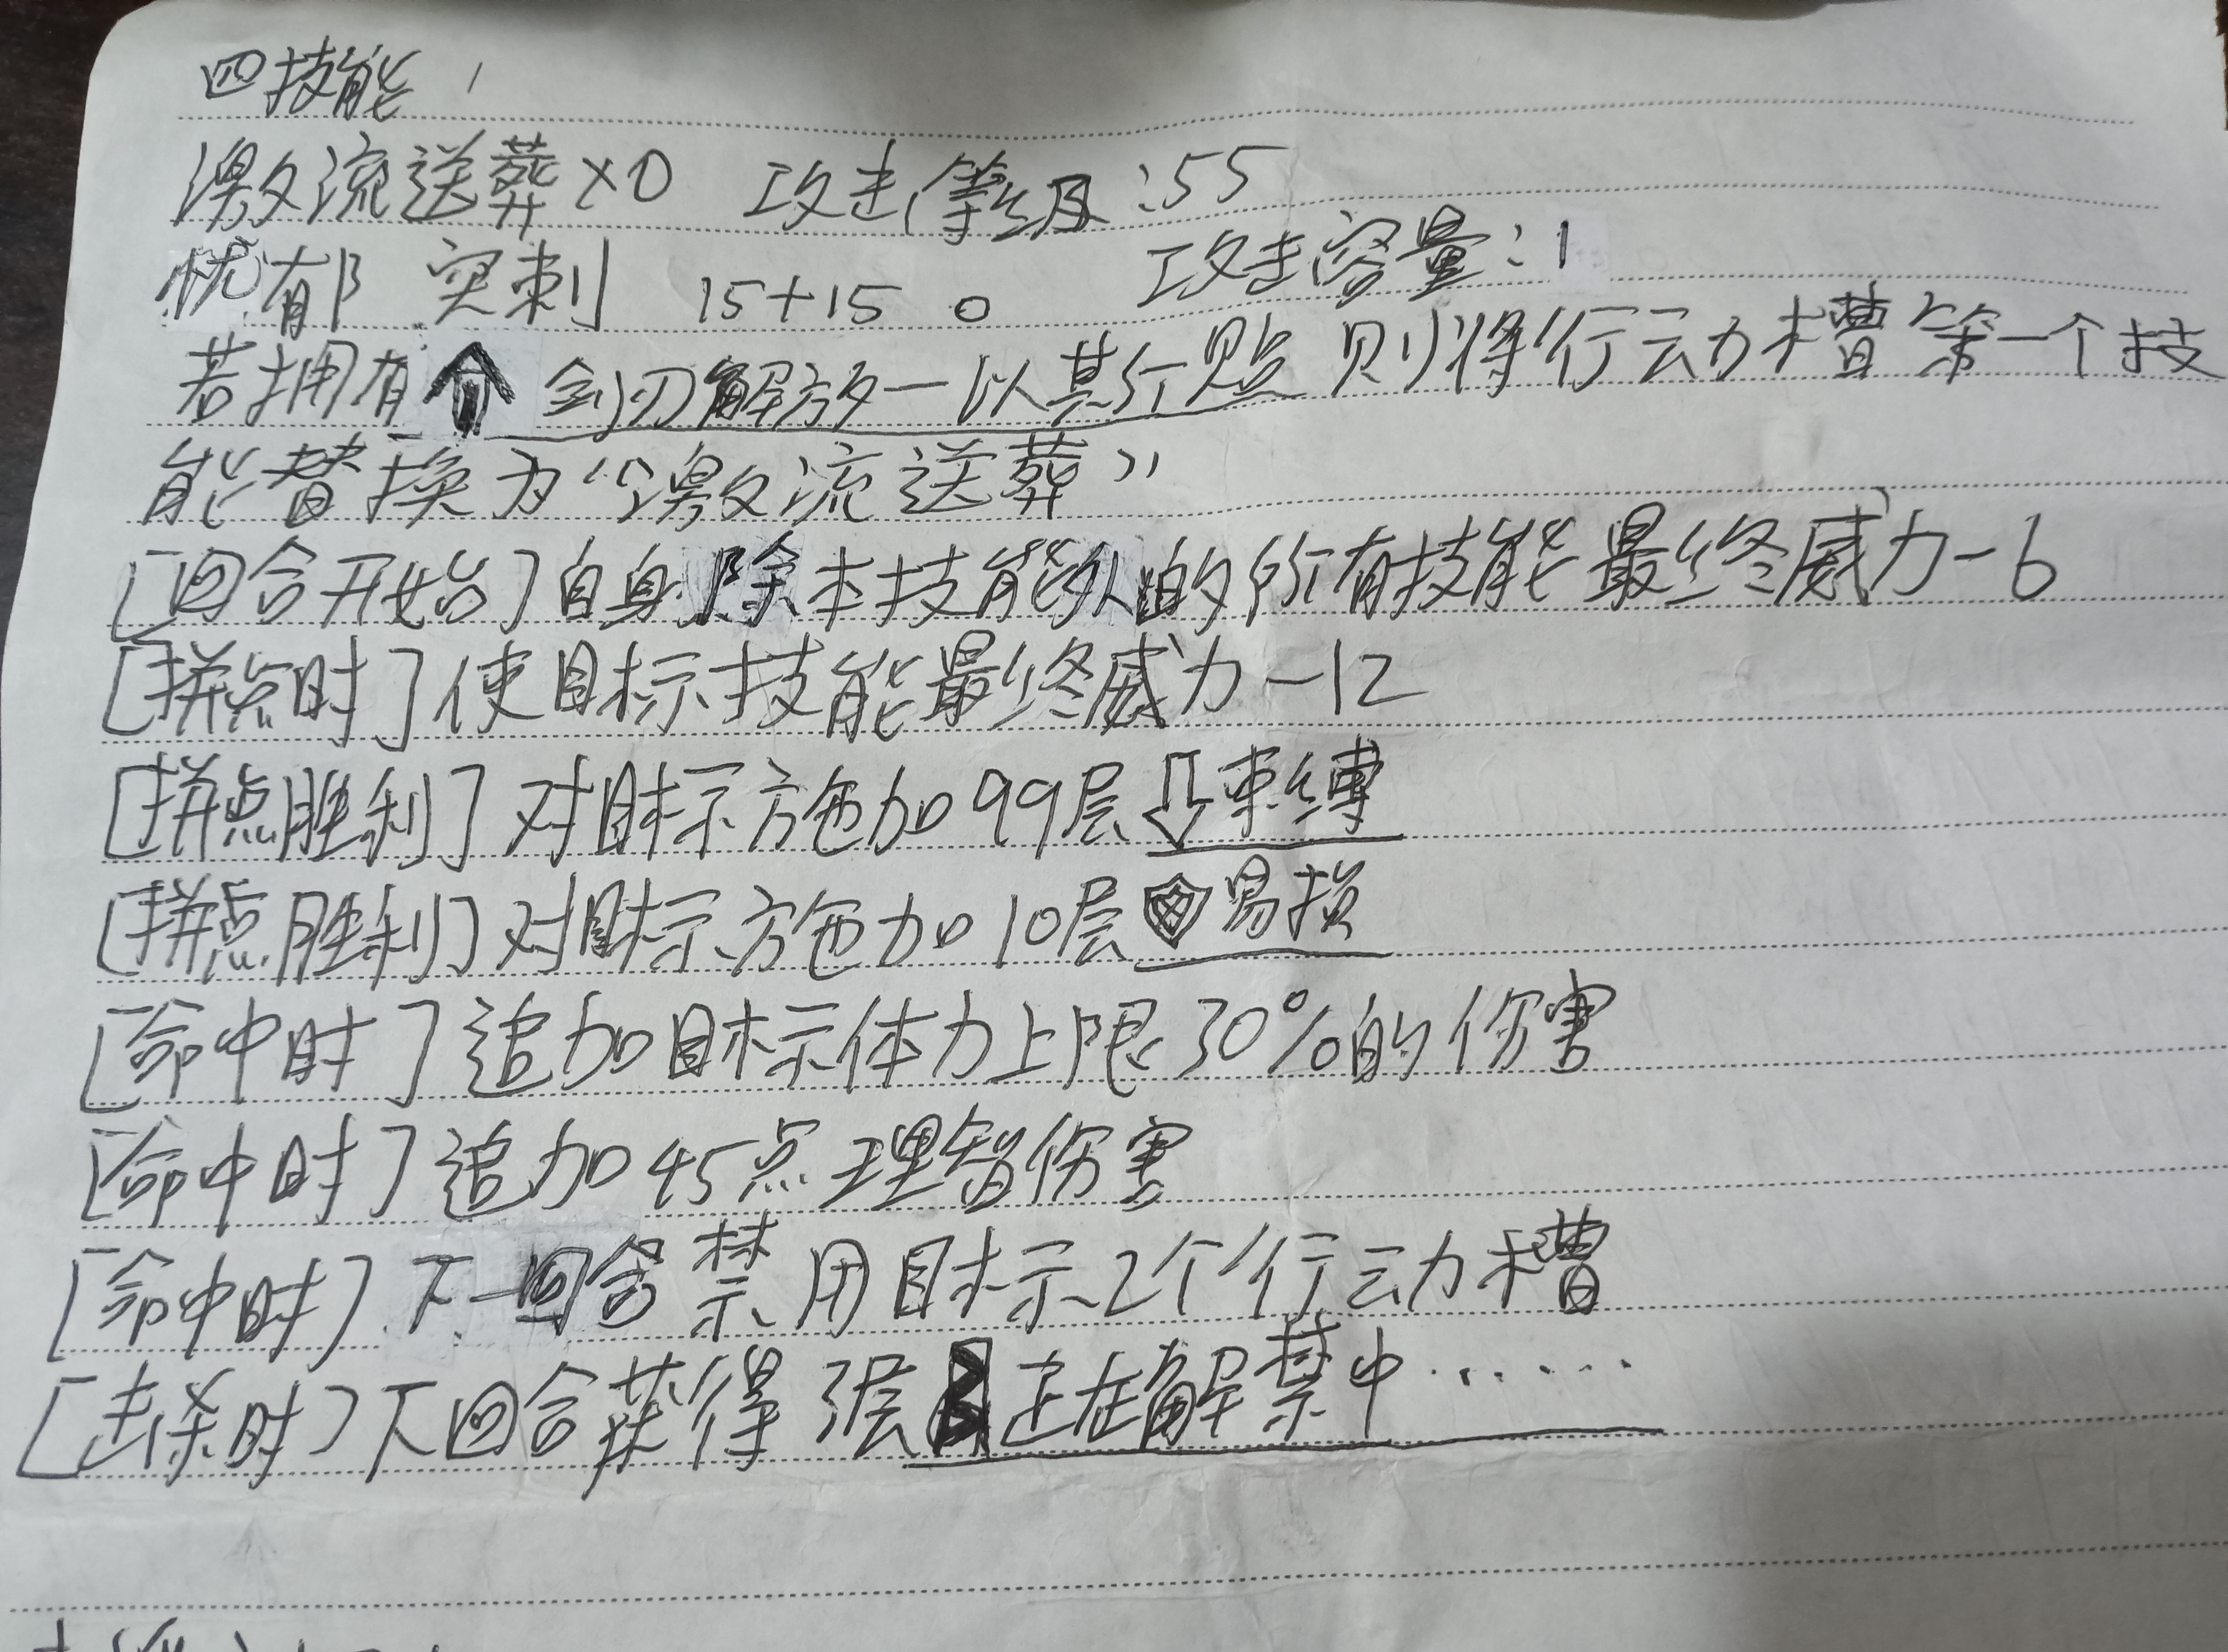 四技能
激流送葬×0 攻击等级:55
忧郁 突刺 15+15 0 攻击容量:1
若拥有 剑刃解放一以 则将行动槽第一个技
能替换为“激流送葬”
[回合开始]自身除本技能外的所有技能最终威力-6
[拼点时]使目标技能最终威力-12
[拼点胜利]对目标施加99层⇩束缚
[拼点胜利]对目标施加10层易损
[命中时]追加目标体力上限30%的伤害
[命中时]追加45点理智伤害
[命中时]下一回合禁用目标2个行动槽
[击杀时]下回合获得3层 正在解禁中……